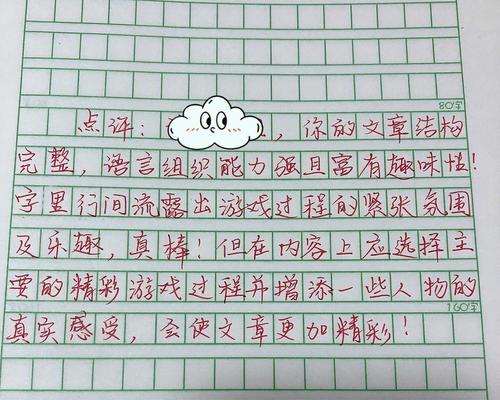 80字
点评: , 你的文章结构
完整, 语言组织能力强且富有趣味性!
字里行间流露出游戏过程的紧张氛围
及乐趣, 真棒! 但在内容上应选择主
要的精彩游戏过程并增添一些人物的
160字
真实感受, 会使文章更加精彩!